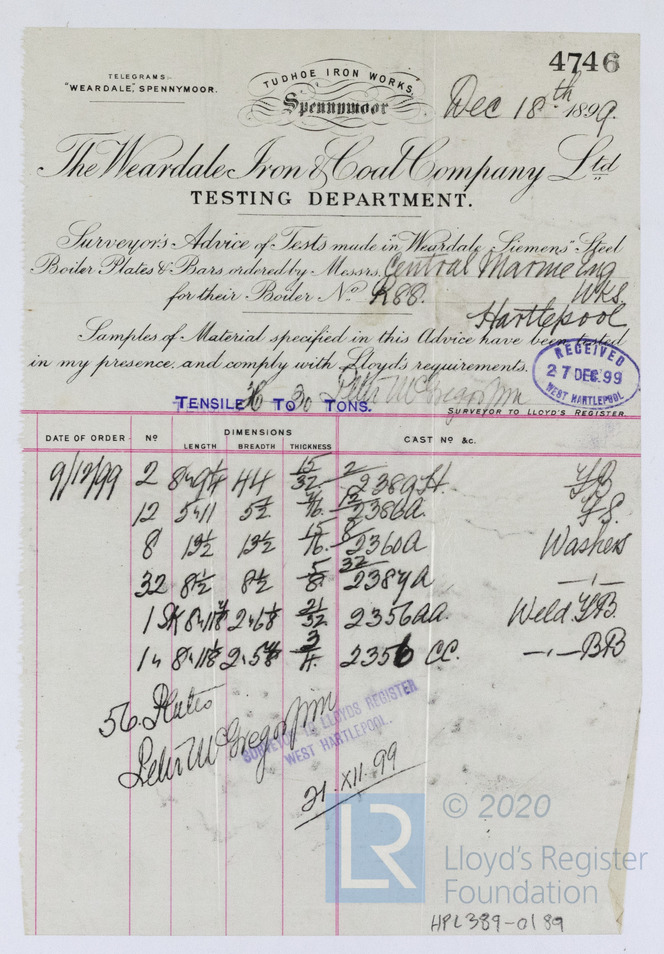 4746
TELEGRAMS:-
"WEARDALE," SPENNYMOOR.
TUDHOE IRON WORKS,
Spennymoor
Dec 18th 1899.
The Weardale Iron & Coal Company Ltd
TESTING DEPARTMENT.
Surveyor's Advice of Tests made in "Weardale-Siemens" Steel
Boiler Plates & Bars ordered by Messrs. Central Marine Eng
Wks.
for their Boiler No. R88.
Hartlepool
Samples of Material specified in this Advice have been tested
in my presence, and comply with Lloyd's requirements.
RECEIVED
27 DEC. 99
WEST HARTLEPOOL
Peter McGregor Jnr
TENSILE 26 TO 30 TONS.
SURVEYOR TO LLOYD'S REGISTER.
DATE OF ORDER No DIMENSIONS CAST No &c.
LENGTH BREADTH THICKNESS
9/12/99 2 44 15/32 2 2389H.
12 5"11 5½ 12 2386A.
8 13½ 13½ 15/16. 8 2360A Washers
32 8½ 8½ 5/8. 32 2387A —"—
1 SK 21/32 2356AA. Weld
1 " 3/4. 2356 CC. —"— BB
56. Plates
Peter McGregor Jnr
SURVEYOR TO LLOYDS REGISTER
WEST HARTLEPOOL.
21.XII.99
LR
© 2020
Lloyd's Register
Foundation
HPL389-0189